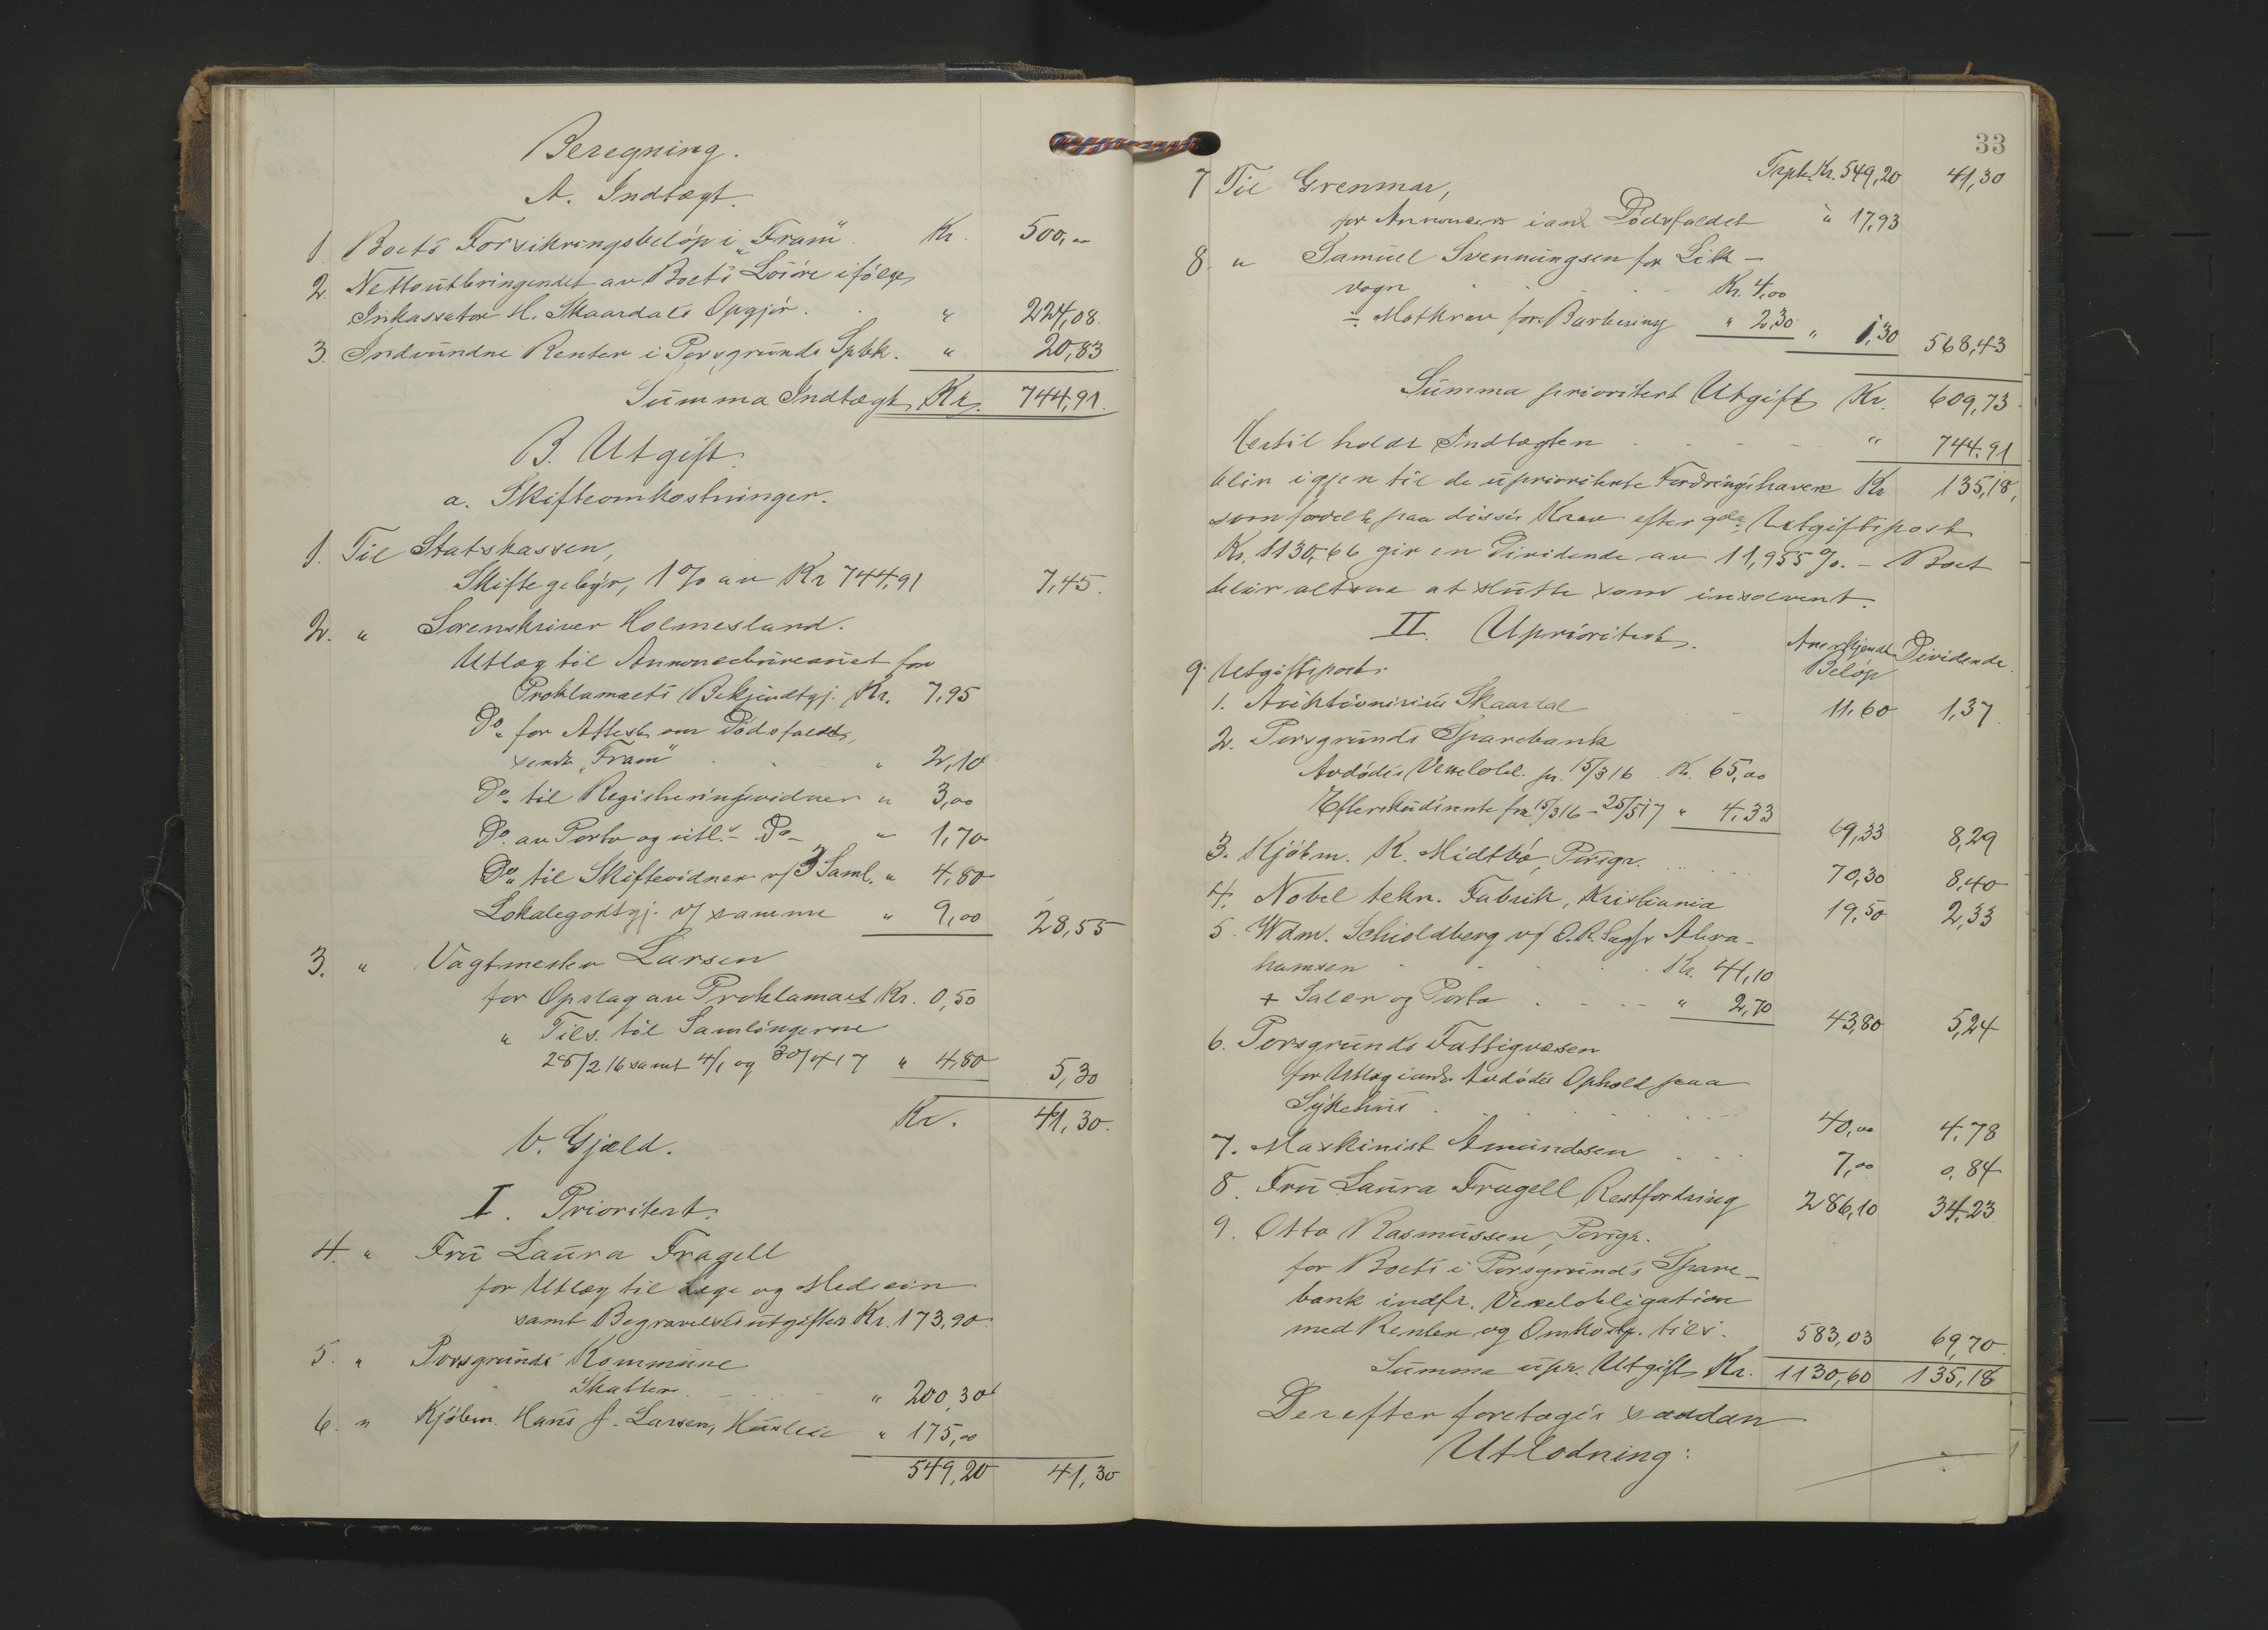 Beregning.
A. Indtægt.
1. Boets Forsikringsbeløp i "Fram" . Kr. 500,00
2. Nettoutbringendet av Boets Løsøre ifølge
Inkassator H. Skaardals Opgjør . . " 224,08.
3. Indvundne Renter i Porsgrunds Spbk. " 20,83
Summa Indtægt Kr. 744,91.
B. Utgift.
a. Skifteomkostninger.
1. Til Statskassen,
Skiftegebyr, 1 % av Kr 744,91 7,45.
2. " Sorenskriver Holmesland.
Utlæg til Annoncebureauet for
Proklamaets Bekjendtgj. Kr. 7,95
Do. for Attest om Dødsfaldet,
sendt "Fram" . . " 2,10
Do. til Registreringsvidner " 3,00
Do. av Porto og utl. - Do - " 1,70
Do. til Skiftevidner v/ 3 Saml. " 4,80
Lokalegodtgj. v/ samme " 9,00 28,55
3. " Vagtmester Larsen
for Opslag av Proklamaet Kr. 0,50
" Tils. til Samlingerne
28/2 16 samt 4/1 og 30/4 17 " 4,80 5,30
Kr. 41,30.
b. Gjæld.
I. Prioritert.
4. " Fru Laura Fragell
for Utlæg til Læge og Medicin
samt Begravelsesutgifter Kr. 173,90.
5. " Porsgrunds Kommune
Skatter . . . " 200,30
6. " Kjøbm. Hans J. Larsen, Husleie " 175,00
549,20 41,30
33
Trspt. Kr. 549,20 41,30
7 Til Grenmar,
for Annoncer i anl. Dødsfaldet " 17,93
8. " Samuel Svenningsen for Lik-
vogn . . . . Kr. 4,00
÷ Motkrav for Barbering " 2,30 " 1,30 568,43
Summa prioritert Utgift Kr. 609,73.
Hertil holdt Indtægten . . . . " 744,91
blir igjen til de uprioriterte Fordringshavere Kr 135,18,
som fordelt paa disses Krav efter 9de Utgiftspost
Kr. 1130,66 gir en Dividende av 11,955 %. - Boet
blir altsaa at slutte som insolvent.
II. Uprioritert.
Anerkjendt Beløp Dividende.
9. Utgiftspost.
1. Auktionarius Skaardal . . 11,60 1,37
2. Porsgrunds Sparebank
Avdødes Vexelobl. pr. 15/3 16 . Kr. 65,00
Efterskudsrente fra 15/3 16 - 25/5 17 " 4,33 69,33 8,29
3. Kjøbm. K. Midtbø, Porsgr. . . . 70,30 8,40
4. Nobel tekn. Fabrik, Kristiania 19,50 2,33
5. Wdm. Schioldberg v/ O.R.Sagfr Abra-
hamsen . . . . . Kr. 41,10
+ Salær og Porto . . . . " 2,70 43,80 5,24
6. Porsgrunds Fattigvæsen
for Utlæg i anl. Avdødes Ophold paa
Sykehus . . . . . . 40,00 4,78
7. Maskinist Amundsen . . . 7,00 0,84
8. Fru Laura Fragell, Restfordring 286,10 34,23
9. Otto Rasmussen, Porsgr.
for Boets i Porsgrunds Spare-
bank indfr. Vexelobligation
med Renter og Omkostg. tils. 583,03 69,70.
Summa upr. Utgift Kr. 1130,60 135,18
Derefter foretages saadan
Utlodning: